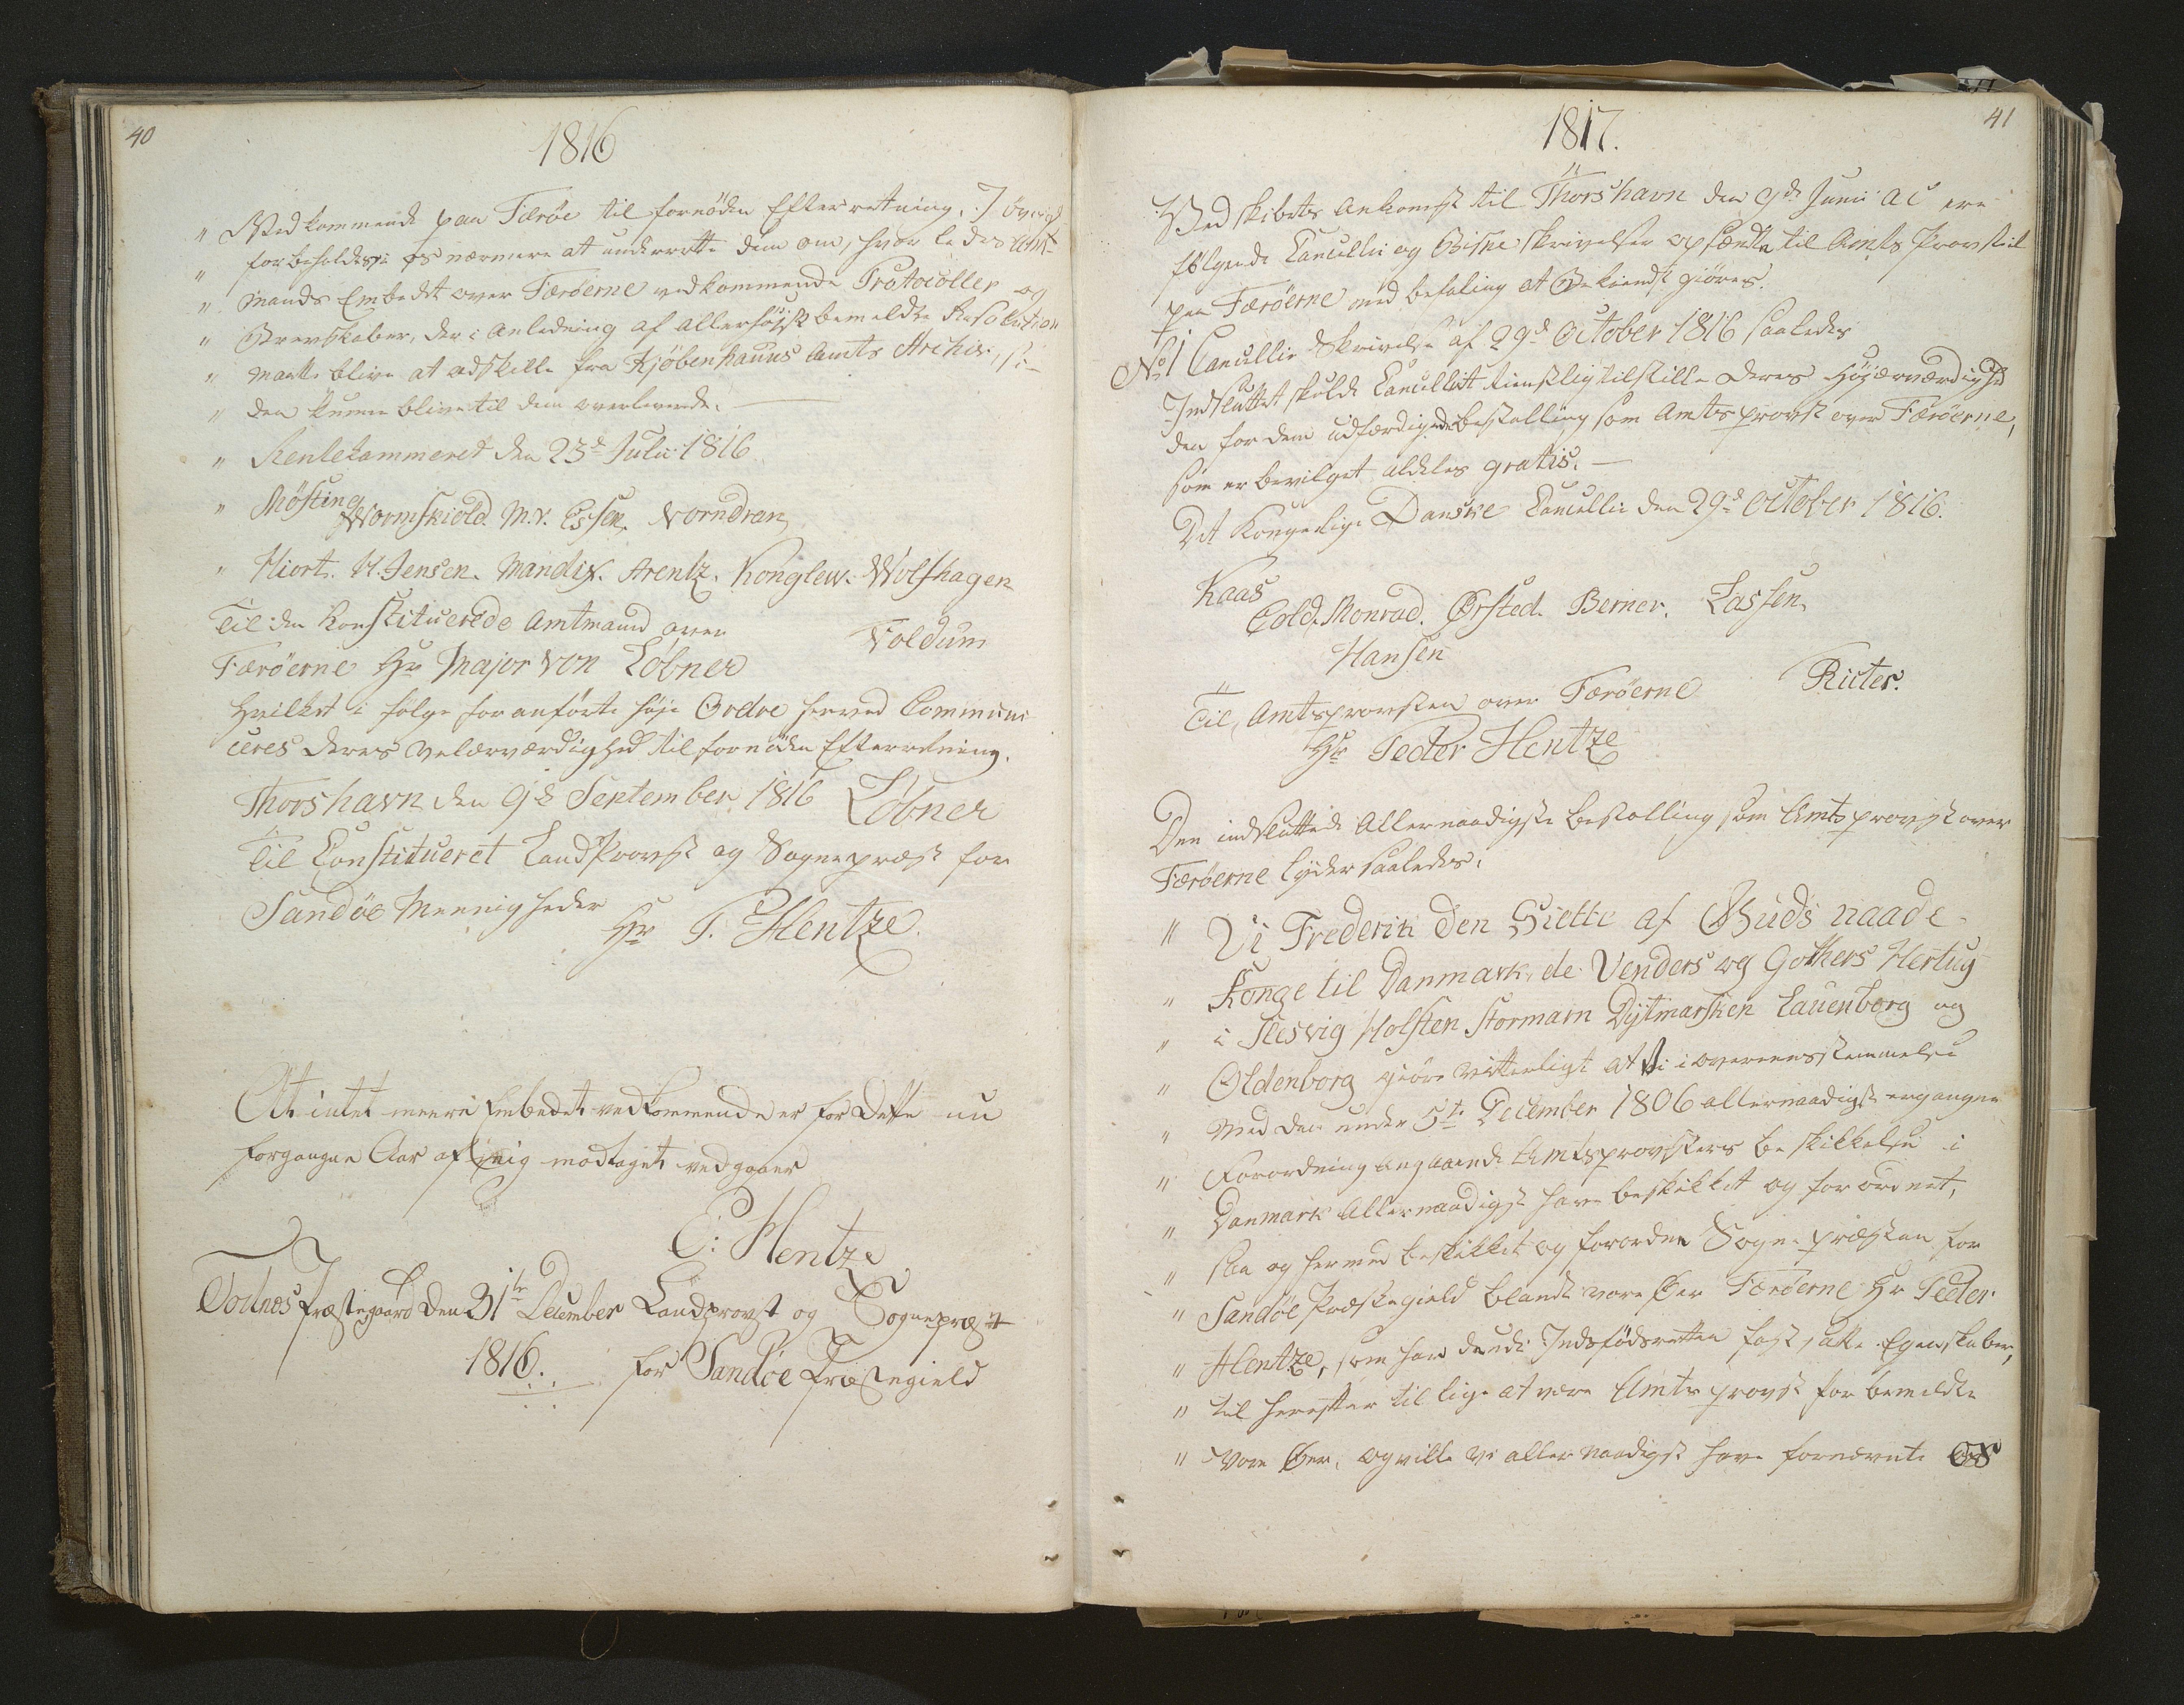 40
1816
" Vedkommende paa Færöe til fornöden Efterretning. I övrigt
" forbeholdes os nærmere at underrette dem om, hvorledes Amt-
" mands Embedet over Færöerne vedkommende Protocoller og
" Brevskaber, der i Anledning af Allerhöist bemeldte Resolution
" maatte blive at adskille fra Kjöbenhauns Amts Archiv,
" den kunne blive til dem overleverede.
" Rentekammeret den 23d Julii 1816
" Mösting
Wormskiold. M. v. Essen. Vorndran
" Hiort. V. Jensen. Mandix. Arentz. Konglew. Wolfhagen
Til den Konstituerede Amtmand over
Voldum
Færöerne Hr Major von Löbner
Hvilket i fölge foranförte höje Ordre herved Communi-
ceres Deres Velærværdighed til fornöden Efterretning.
Thorshavn den 9d September 1816 Löbner
Til Constitueret Landprovst og Sognepræst for
Sandöe Menigheder
Hr P. Hentze.
At intet meere Embedet vedkommende er for Dette nu
forgangne Aar af mig modtaget vedgaaer
P: Hentze
Todnæs Præstegaard den 31te December Landprovst og Sognepræst
1816. for Sandöe Præstegield
41
1817.
Ved skibets Ankomst til Thorshavn den 9d Junii a c ere
fölgende Cancellie og Bispe skrivelser opsendte til Amts Provstiet
paa Færöerne med befaling at Bekiendt giöres.
No 1 Cancellie Skrivelse af 29d October 1816 saaledes
Indsluttet skulde Cancelliet tienstligt tilstille Deres Höjærværdighed
den for dem udfærdigede bestalling som Amtsprovst over Færöerne,
som er bevilget aldeles gratis. —
Det Kongelige Danske Cancellie den 29d October 1816.
Kaas
Cold. Monrad. Ørsted. Berner. Lassen.
Hansen
Ricter.
Til Amtsprovsten over Færöerne
Hr Peder Hentze
Den indsluttede Allernaadigste bestalling som Amtsprovst over
Færöerne lyder saaledes:
" Vi Frederik den Siette af Guds naade
" Konge til Danmark, de Venders og Gothers Hertug
" i Slesvig Holsten Stormarn Dytmarsken Lauenborg og
" Oldenborg giöre vitterligt at Vi i overeensstemmelse
" Med den under 5te December 1806 allernaadigst ergangne
" Forordning angaaende Amtsprovsters beskikkelse i
" Danmark Allernaadigst have beskikket og forordnet,
" saa og hermed beskikket og forordne Sogne præsten for
" Sandöe Præstegield blandt vore Öer Færöerne Hr Peder
" Hentze, som har de udi Indfödsretten fastsatte Egenskaber,
" til herefter tillige at være Amts provst for bemeldte
" Vore Öer, og ville Vi allernaadigst have fornævnte OS